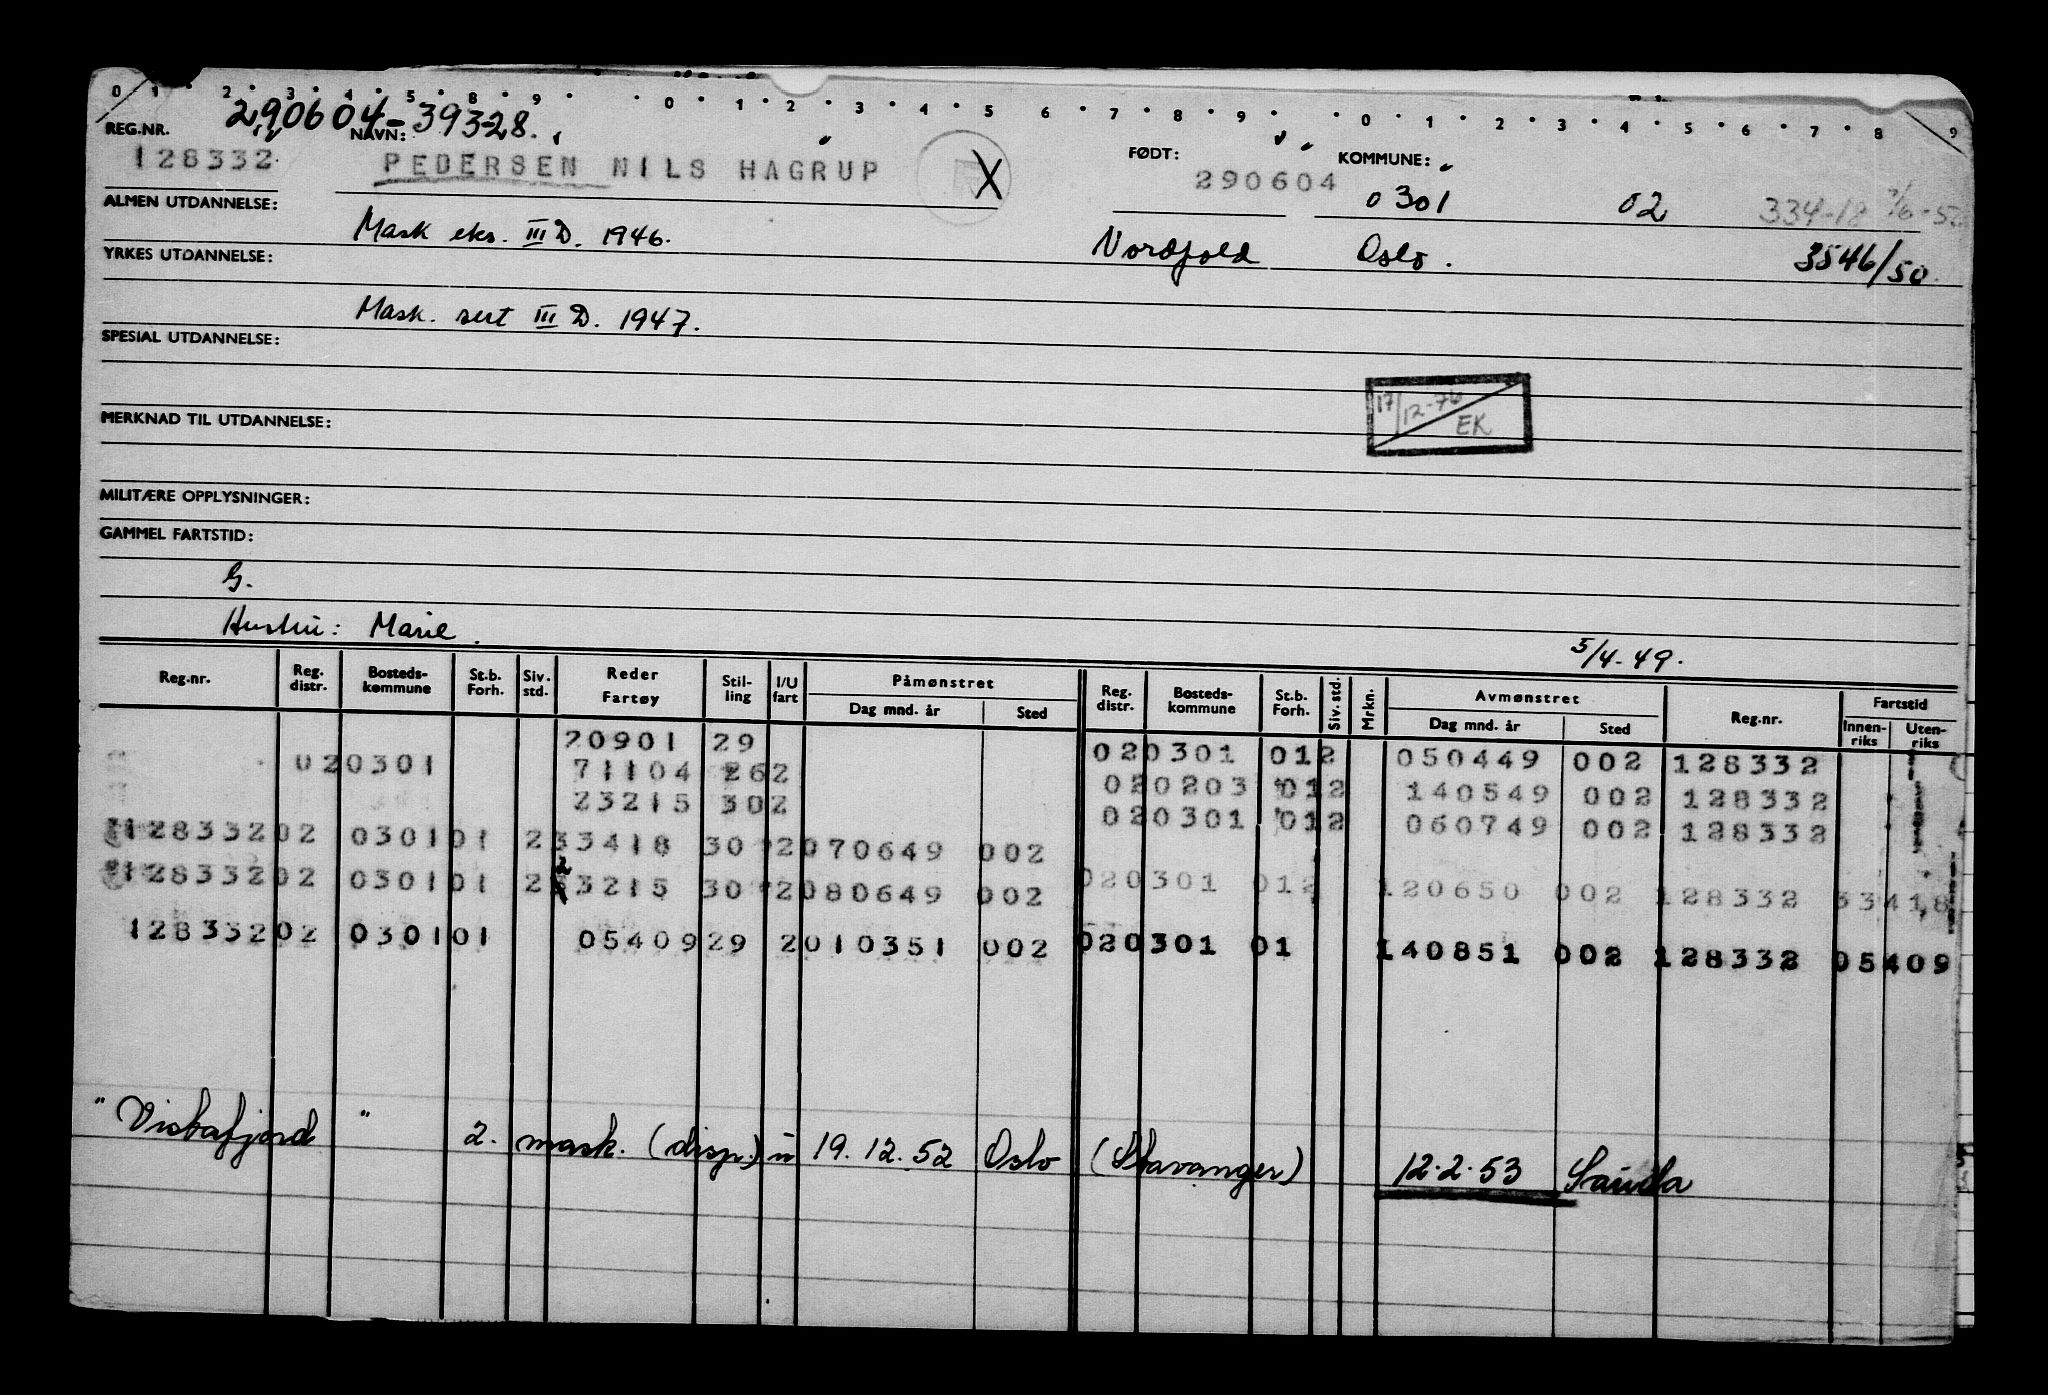 0 1 2 3 4 5 8 9 0 1 2 3 4 5 6 7 8 9 0 1 2 3 4 5 6 7 8 9
290604-39328.
REG.NR. NAVN: FØDT: KOMMUNE:
128332 PEDERSEN NILS HAGRUP X 290604 0301 02 334-18
ALMEN UTDANNELSE:
Mask eks. III D. 1946. Nordfold Oslo. 3546/50.
YRKES UTDANNELSE:
Mask. sert III D. 1947.
SPESIAL UTDANNELSE:
17/12-76 EK
MERKNAD TIL UTDANNELSE:
MILITÆRE OPPLYSNINGER:
GAMMEL FARTSTID:
G.
Hustru: Marie.
5/4-49.
Reg.nr. Reg. distr. Bosteds-kommune St.b. Forh. Siv. std. Reder Fartøy Stil-ling I/U fart Påmønstret Dag mnd. år Sted Reg. distr. Bosteds-kommune St.b. Forh. Siv. std. Mrkn. Avmønstret Dag mnd. år Sted Reg.nr. Fartstid Innen-riks Uten-riks
20901 29 020301 012 050449 002 128332
020301 71104 262 020203 012 140549 002 128332
23215 302 020301 012 060749 002 128332
128332 02 0301 01 2 33418 30 2 070649 002
128332 02 0301 01 2 23215 30 2 080649 002 020301 012 120650 002 128332 33418
128332 02 0301 01 05409 29 2 010351 002 020301 01 140851 002 128332 05409
"Vistafjord" 2. mask. (disp.) u 19.12.52 Oslo (Stavanger) 12.2.53 Sauda